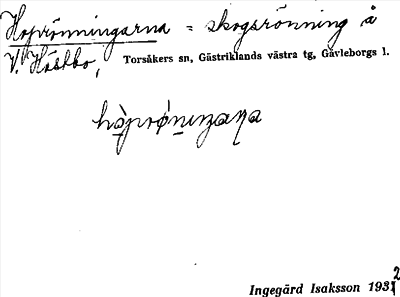 Hoprönningarna = skogsrönning å
V. Hästbo, Torsåkers sn, Gästriklands västra tg, Gävleborgs l.
Ingegärd Isaksson 1932